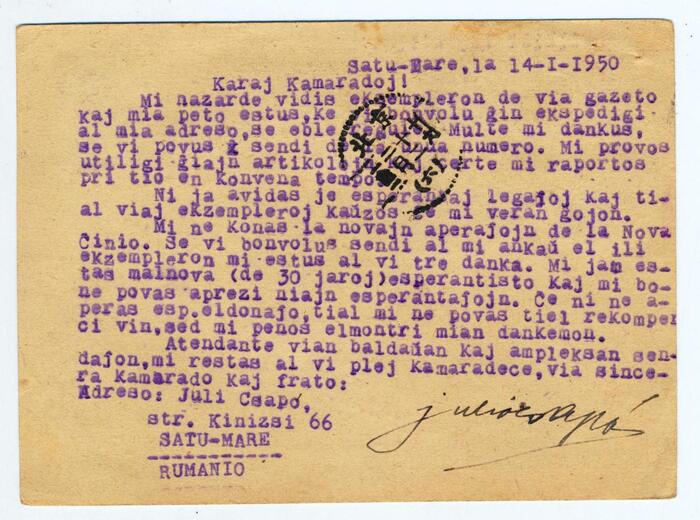 Satu-Mare,la 14-I-1950
Karaj Kamaradoj!
Mi nazarde vidis ekzempleron de via gazeto
kaj mia peto estus,ke vi bonvolu ĝin ekspedigi
al mia adreso,se eble regule. Multe mi dankus,
se vi povus sendi de unua numero. Mi provos
utiligi ĝiajn artikolojn mi raportos
pri tio en konvena tempo.
Ni ja avidas je esperantaj legaĵoj kaj ti-
al viaj ekzempleroj kaŭzos al mi veran ĝojon.
Mi ne konas la novajn aperaĵojn de la Nova
Ĉinio. Se vi bonvolus sendi al mi ankaŭ el ili
ekzempleron mi estus al vi tre danka. Mi jam es-
tas malnova (de 30 jaroj)esperantisto kaj mi bo-
ne povas aprezi niajn esperantaĵojn. Ĉe ni ne a-
peras esp.eldonaĵo,tial mi ne povas tiel rekompen
ci vin,sed mi penos elmontri mian dankemon.
Atendante vian baldaŭan kaj ampleksan sen-
daĵon,mi restas al vi plej kamaradece,via since-
ra kamarado kaj frato:
Adreso: Juli Csapó,
str. Kinizsi 66
SATU-MARE
RUMANIO
julio csapó